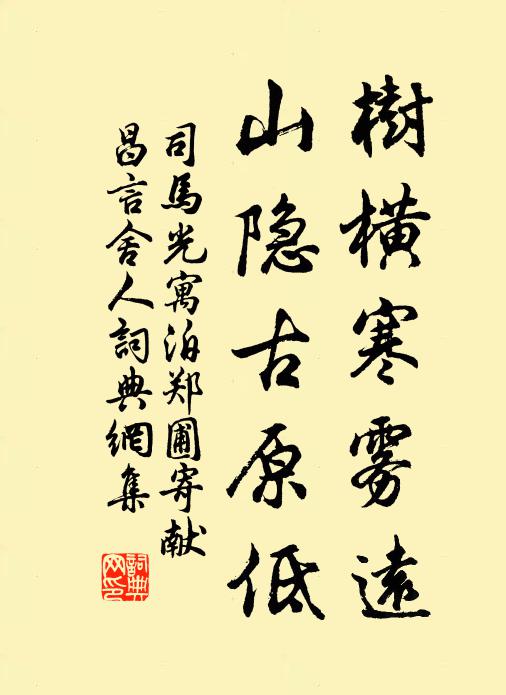 樹橫寒雾遠
山隐古原低
司馬光寓泊郑圃寄献
昌言舍人詞典網集
詞典
网印